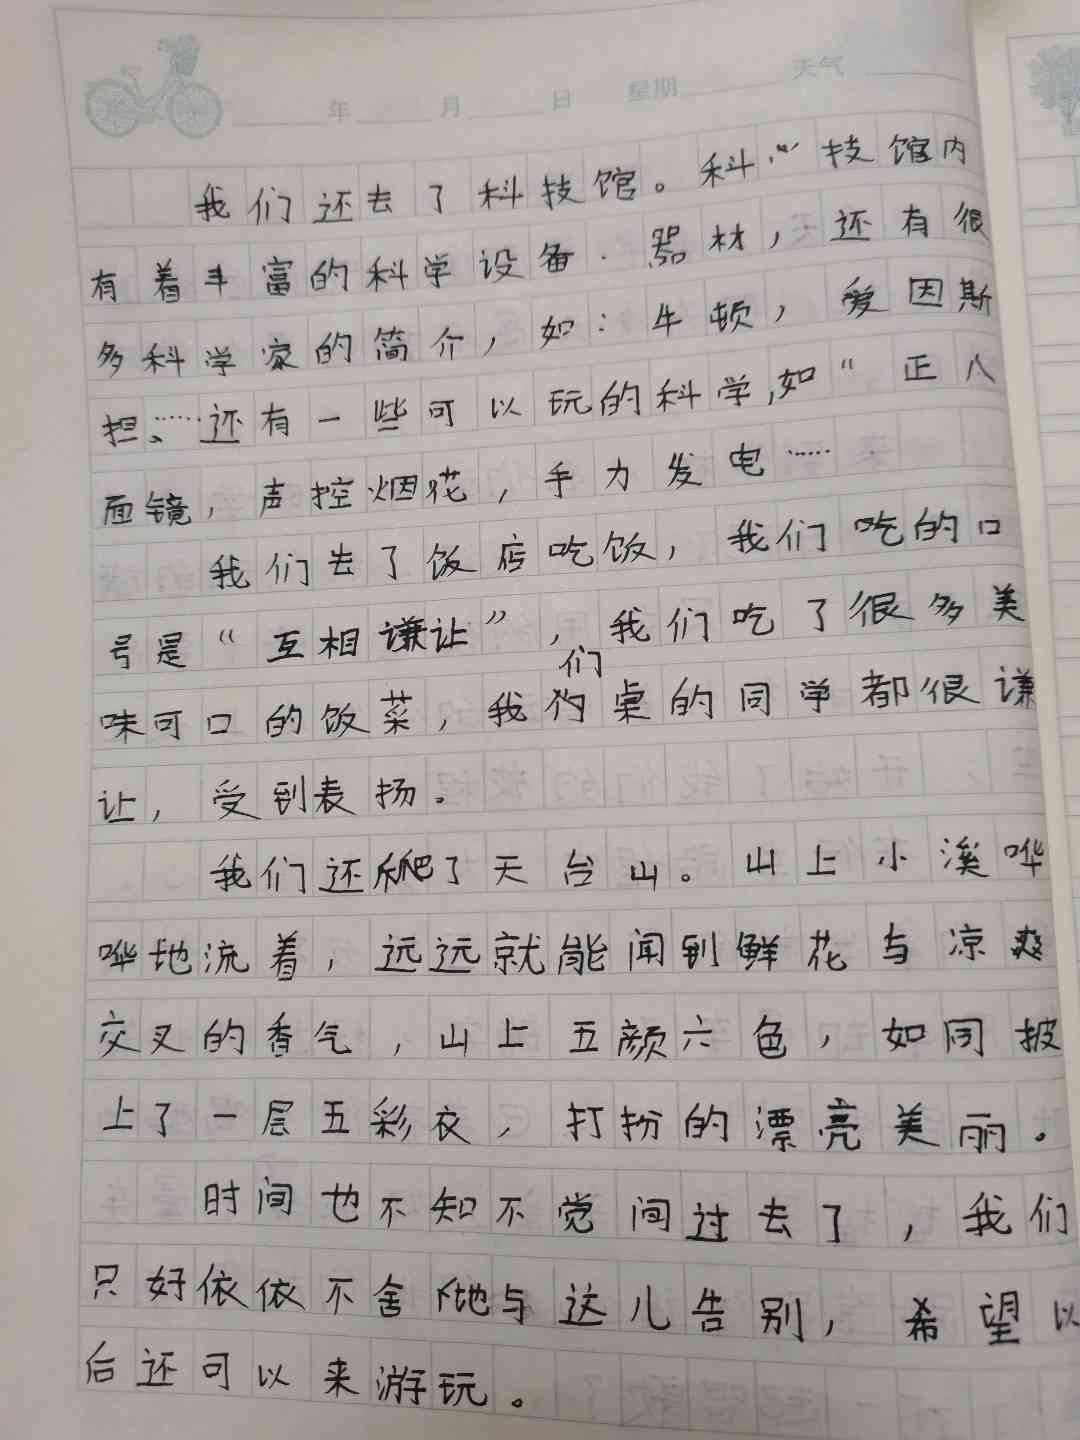 年 月 日 星期 天气
我们还去了科技馆。科技馆内
有着丰富的科学设备.器材,还有很
多科学家的简介,如:牛顿,爱因斯
担、……还有一些可以玩的科学,如“正八
面镜,声控烟花,手力发电……
我们去了饭店吃饭,我们吃的口
号是“互相谦让”,我们吃了很多美
味可口的饭菜,我们桌的同学都很谦
让,受到表扬.
我们还爬了天台山。山上小溪哗
哗地流着,远远就能闻到鲜花与凉爽
交叉的香气,山上五颜六色,如同披
上了一层五彩衣,打扮的漂亮美丽.
时间也不知不觉间过去了,我们
只好依依不舍地与这儿告别,希望以
后还可以来游玩。